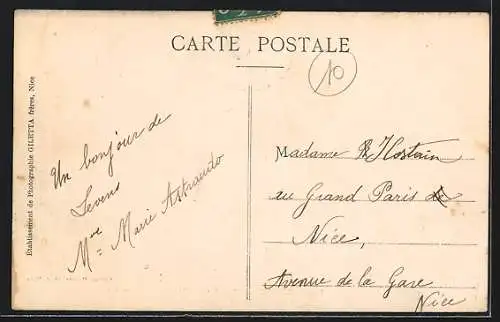 CARTE POSTALE
10
Etablissement de Photographie GILETTA frères, Nice
Un bonjour de
Levens
Mme Marie Astraudo
Madame
au Grand Paris
Nice,
Avenue de la Gare
Nice